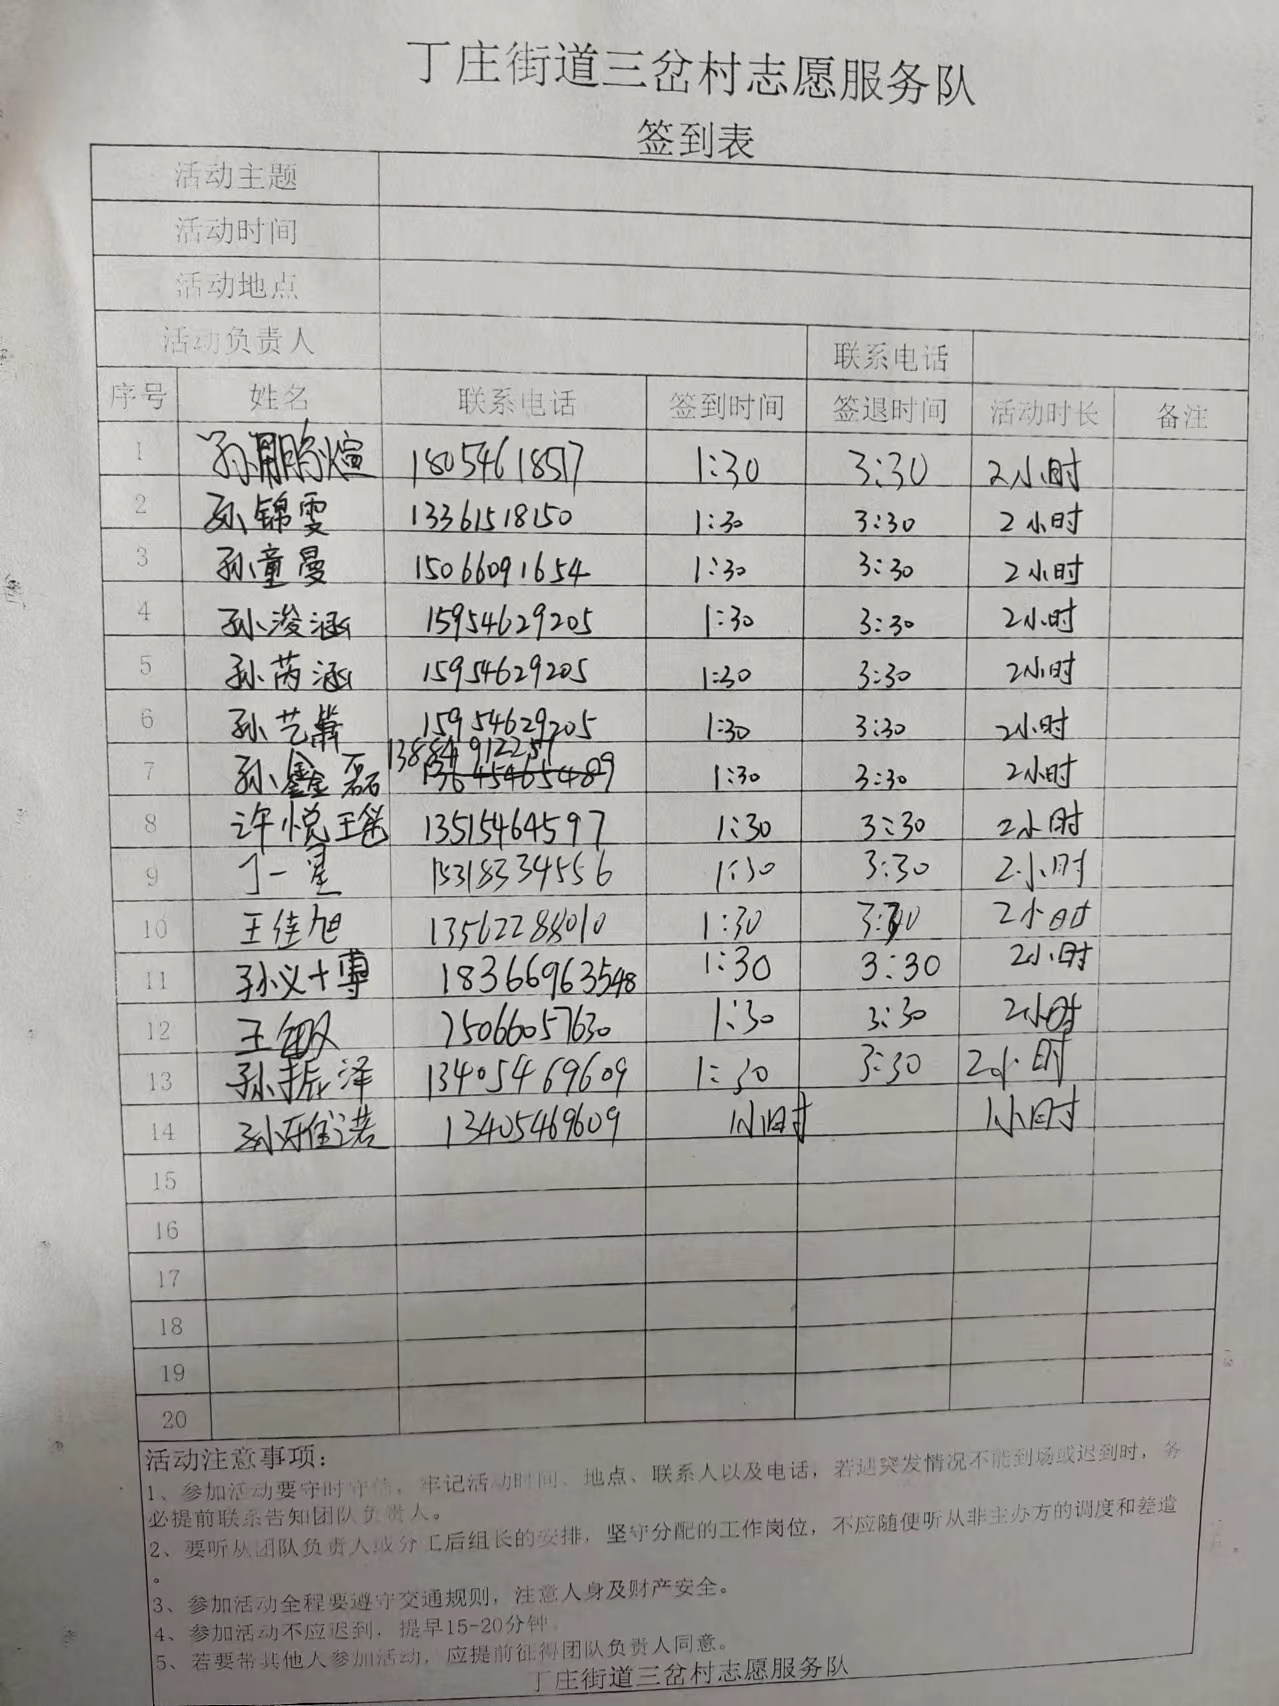 丁庄街道三岔村志愿服务队
签到表
活动主题
活动时间
活动地点
活动负责人 联系电话
序号 姓名 联系电话 签到时间 签退时间 活动时长 备注
1 孙鹏煊 18054618517 1:30 3:30 2小时
2 孙锦雯 13361518150 1:30 3:30 2小时
3 孙童曼 15066091654 1:30 3:30 2小时
4 孙浚涵 15954629205 1:30 3:30 2小时
5 孙芮涵 15954629205 1:30 3:30 2小时
6 孙艺 15954629205 1:30 3:30 2小时
7 孙鑫磊 13884912257 13645465489 1:30 3:30 2小时
8 许悦 13515464597 1:30 3:30 2小时
9 丁一星 15318334556 1:30 3:30 2小时
10 王佳旭 13562288010 1:30 3:30 2小时
11 孙义博 18366963548 1:30 3:30 2小时
12 王 15066057630 1:30 3:30 2小时
13 孙振泽 13405469609 1:30 3:30 2小时
14 孙雅诺 13405469609 1小时 1小时
15
16
17
18
19
20
活动注意事项：
1、参加活动要守时守信，牢记活动时间、地点、联系人以及电话，若遇突发情况不能到场或迟到时，务
必提前联系告知团队负责人。
2、要听从团队负责人或分工后组长的安排，坚守分配的工作岗位，不应随便听从非主办方的调度和差遣
。
3、参加活动全程要遵守交通规则，注意人身及财产安全。
4、参加活动不应迟到，提早15-20分钟。
5、若要带其他人参加活动，应提前征得团队负责人同意。
丁庄街道三岔村志愿服务队